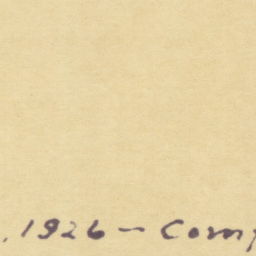 , 1926 — Comp